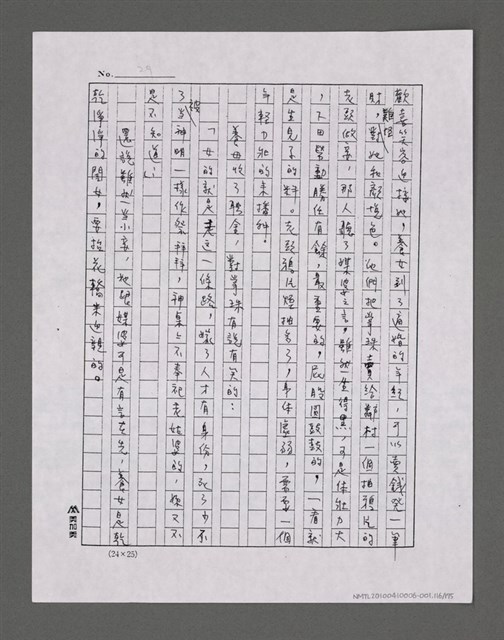 No. 29
歡喜笑容迎接她，養女到了適婚的年紀，可以賣錢兌一筆
財，難怪對她和顏悅色。他們把掌珠賣給鄰村一個抽鴉片的
老頭做妾，那人聽了媒婆之言，雖然生得黑，可是体壯力大
，下田勞動勝任有餘，最重要的，屁股圓鼓鼓的，一看就
是生兒子的料。老頭鴉片煙抽多了，身体虛弱，需要一個
年輕力壯的來播種。
養母收了聘金，對掌珠有說有笑的：
「女的就是走這一條路，嫁了人才有身份，死了少不
了被當神明一樣作祭拜拜，神桌上不奉祀老姑婆的，妳又不
是不知道…」
還說雖然當小妾，她跟媒婆可是有言在先，養女是乾
乾淨淨的閨女，要抬花轎來迎親的。
(24×25)
NMTL20100410006-001.116/175